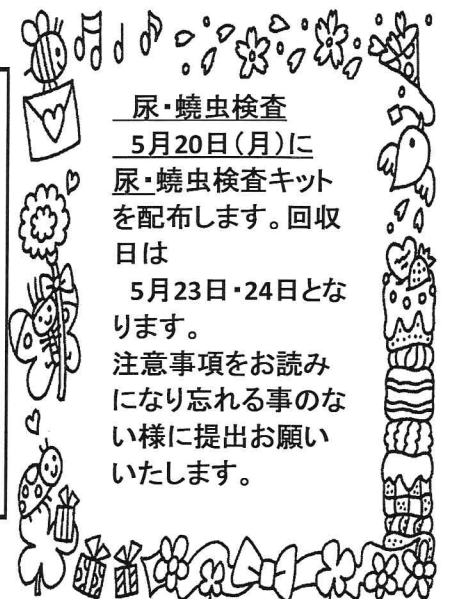 尿・蟯虫検査
5月20日(月)に
尿・蟯虫検査キット
を配布します。回収
日は
5月23日・24日とな
ります。
注意事項をお読み
になり忘れる事のな
い様に提出お願い
いたします。